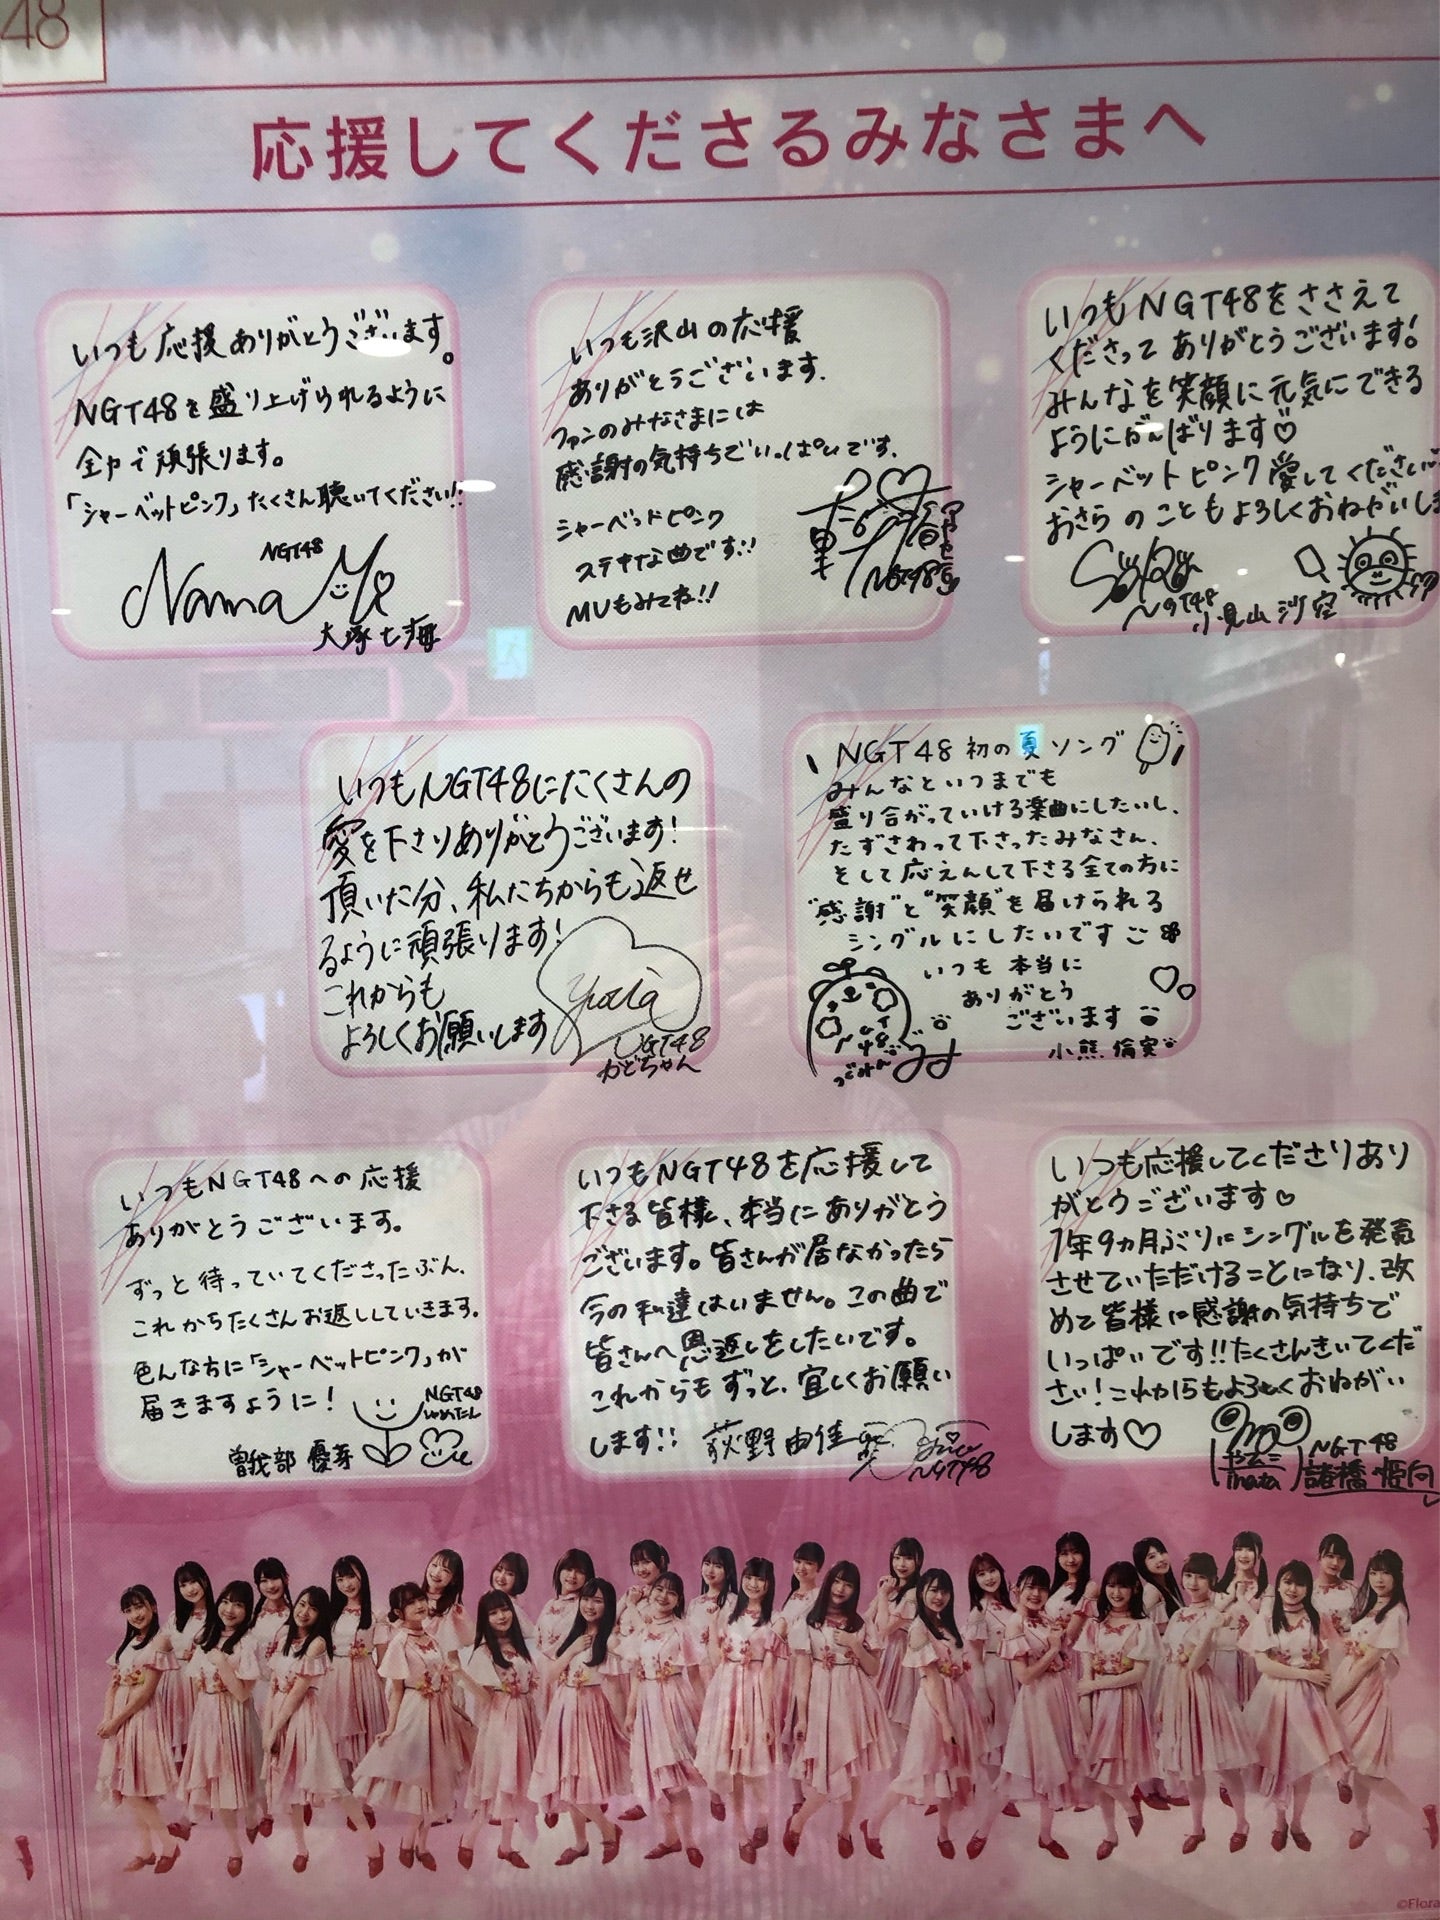 48
応援してくださるみなさまへ
いつも応援ありがとうございます。
NGT48を盛り上げられるように
全力で頑張ります。
「シャーベットピンク」たくさん聴いてください!!
NGT48
Nanami
大塚七海
いつも沢山の応援
ありがとうございます.
ファンのみなさまには
感謝の気持ちでいっぱいです.
シャーベットピンク
ステキな曲です!!
MVもみてね!!
NGT48
いつもNGT48をささえて
くださって ありがとうございます!
みんなを笑顔に元気にできる
ようにがんばります♡
シャーベットピンク愛してください
おさらのこともよろしくおねがいしま
NGT48
小見山沙空
いつもNGT48にたくさんの
愛を下さりありがとうございます!
頂いた分、私たちからも返せ
るように頑張ります!
これからも
よろしくお願いします
NGT48
かどちゃん
NGT48 初の夏ソング
みんなといつまでも
盛り合がっていける楽曲にしたいし、
たずさわって下さったみなさん、
そして応えんして下さる全ての方に
"感謝"と"笑顔"を届けられる
シングルにしたいです
いつも本当に
ありがとう
ございます
48
つぐみん
小熊倫実
いつもNGT48への応援
ありがとうございます。
ずっと待っていてくださったぶん、
これからたくさんお返ししていきます。
色んな方に「シャーベットピンク」が
届きますように!
NGT48
ゆめたん
曽我部優芽
いつもNGT48を応援して
下さる皆様、本当にありがとう
ございます。皆さんが居なかったら
今の私達はいません。この曲で
皆さんへ恩返しをしたいです。
これからもずっと、宜しくお願い
します!! 荻野由佳
NGT48
いつも応援してくださりあり
がとうございます♡
1年9カ月ぶりにシングルを発売
させていただけることになり、改
めて皆様に感謝の気持ちで
いっぱいです!!たくさんきいてくだ
さい!これからもよろしくおねがい
します♡
NGT48
諸橋姫向
©Flora